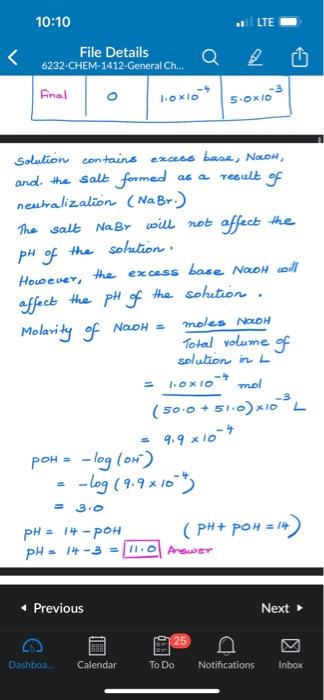 10:10
LTE
File Details
6232-CHEM-1412-General Ch...
Final 0 1.0×10⁻⁴ 5.0×10⁻³
Solution contains excess base, NaOH,
and the salt formed as a result of
neutralization (NaBr.)
The salt NaBr will not affect the
pH of the solution.
However, the excess base NaOH will
affect the pH of the solution.
Molarity of NaOH = moles NaOH
Total volume of
solution in L
= 1.0×10⁻⁴ mol
(50.0 + 51.0)×10⁻³ L
= 9.9 × 10⁻⁴
pOH = -log (OH⁻)
= -log (9.9 × 10⁻⁴)
= 3.0
pH = 14 - pOH (pH + pOH = 14)
pH = 14 - 3 = 11.0 Answer
Previous
Next
25
Dashboa...
Calendar
To Do
Notifications
Inbox